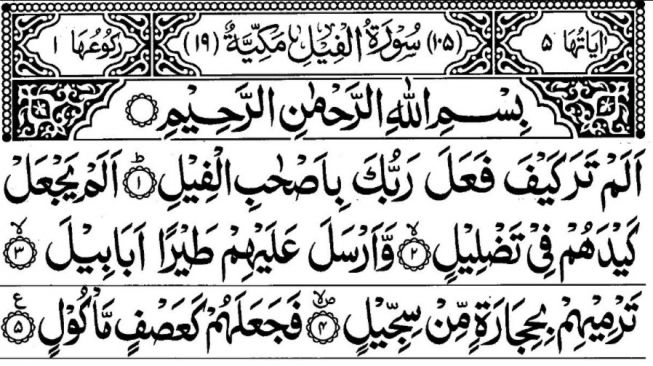 اٰیَاتُهَا ۵ (۱۰۵) سُوْرَةُ الْفِیْلِ مَكِّیَّةٌ (۱۹) رُكُوْعُهَا ۱
بِسْمِ اللّٰهِ الرَّحْمٰنِ الرَّحِیْمِ
اَلَمْ تَرَ كَیْفَ فَعَلَ رَبُّكَ بِاَصْحٰبِ الْفِیْلِ ۱ ط اَلَمْ یَجْعَلْ
كَیْدَهُمْ فِیْ تَضْلِیْلٍ ۲ لا وَّ اَرْسَلَ عَلَیْهِمْ طَیْرًا اَبَابِیْلَ ۳ لا
تَرْمِیْهِمْ بِحِجَارَةٍ مِّنْ سِجِّیْلٍ ۴ صلا فَجَعَلَهُمْ كَعَصْفٍ مَّاْكُوْلٍ ۵ ع